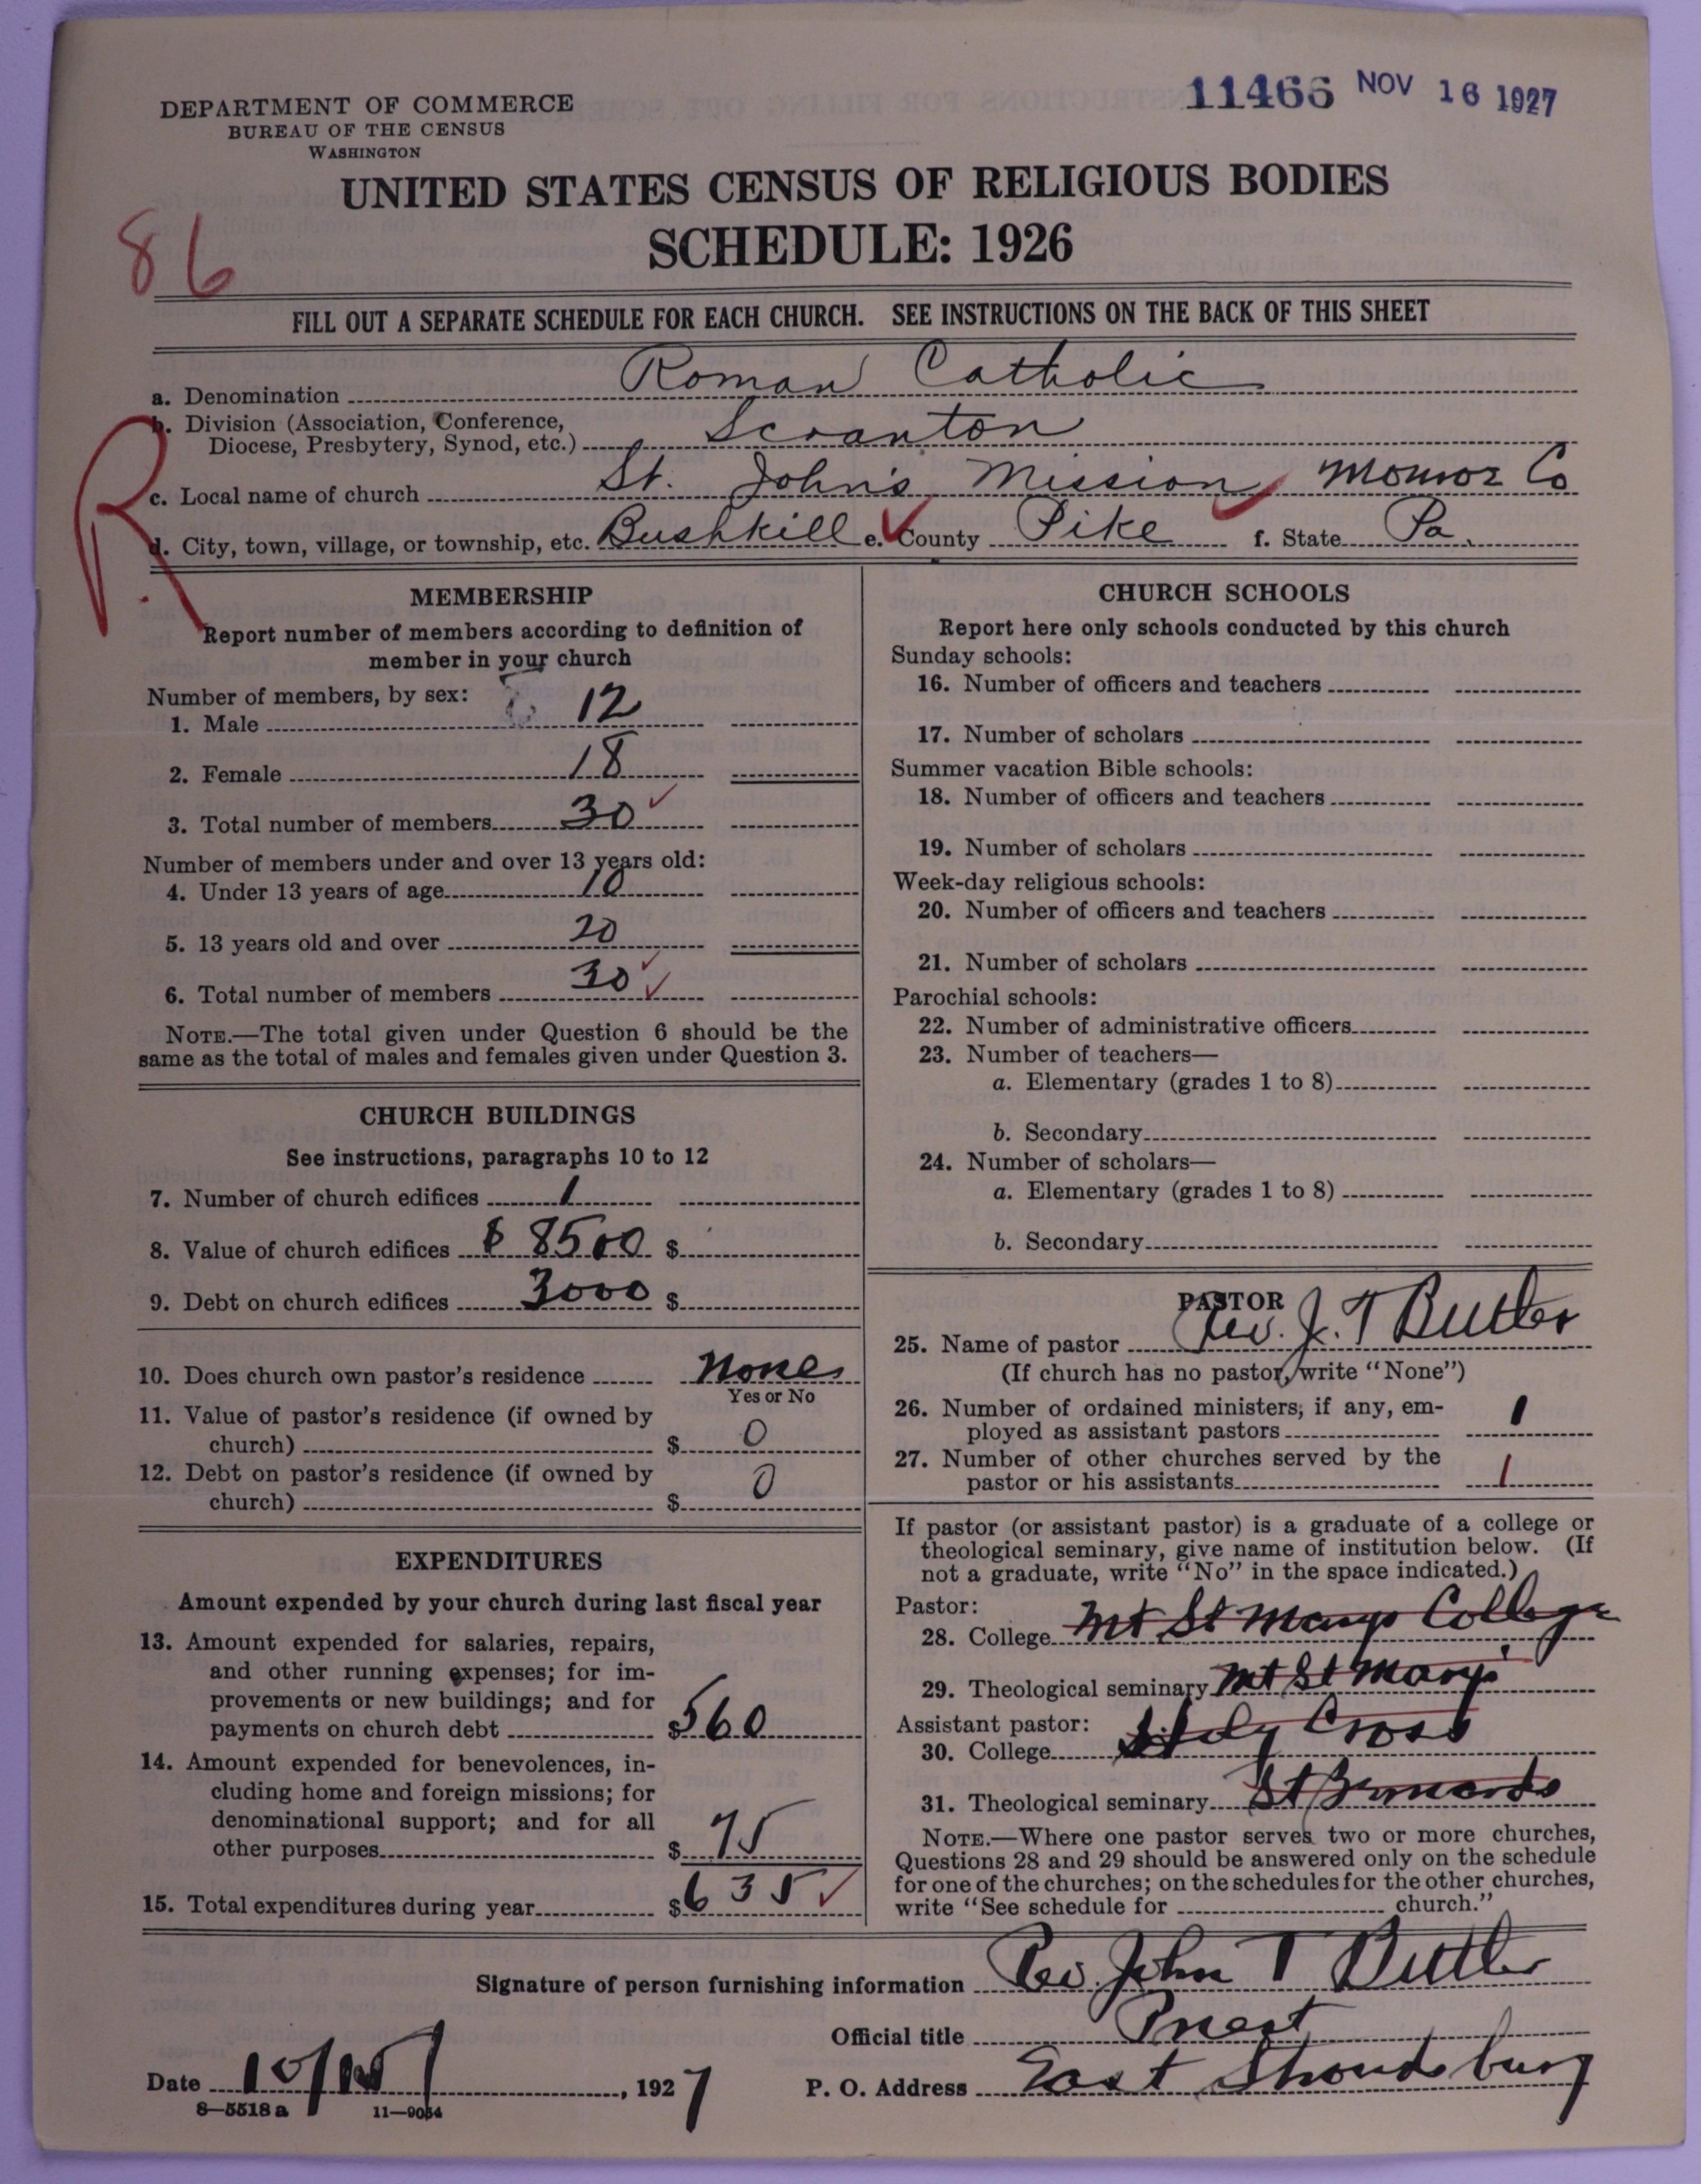 11466 NOV 16 1927
DEPARTMENT OF COMMERCE
BUREAU OF THE CENSUS
WASHINGTON
UNITED STATES CENSUS OF RELIGIOUS BODIES
SCHEDULE: 1926
86
FILL OUT A SEPARATE SCHEDULE FOR EACH CHURCH. SEE INSTRUCTIONS ON THE BACK OF THIS SHEET
a. Denomination Roman Catholic
b. Division (Association, Conference,
Diocese, Presbytery, Synod, etc.) Scranton
R
c. Local name of church St. John's Mission Monroe Co
d. City, town, village, or township, etc. Bushkill e. County Pike f. State Pa.
MEMBERSHIP
Report number of members according to definition of
member in your church
Number of members, by sex:
1. Male 12
2. Female 18
3. Total number of members 30
Number of members under and over 13 years old:
4. Under 13 years of age 10
5. 13 years old and over 20
6. Total number of members 30
NOTE.—The total given under Question 6 should be the
same as the total of males and females given under Question 3.
CHURCH BUILDINGS
See instructions, paragraphs 10 to 12
7. Number of church edifices 1
8. Value of church edifices $ 8500 $
9. Debt on church edifices 3000 $
10. Does church own pastor's residence None
Yes or No
11. Value of pastor's residence (if owned by
church) $ 0
12. Debt on pastor's residence (if owned by
church) $ 0
EXPENDITURES
Amount expended by your church during last fiscal year
13. Amount expended for salaries, repairs,
and other running expenses; for im-
provements or new buildings; and for
payments on church debt $560
14. Amount expended for benevolences, in-
cluding home and foreign missions; for
denominational support; and for all
other purposes $ 75
15. Total expenditures during year $635
CHURCH SCHOOLS
Report here only schools conducted by this church
Sunday schools:
16. Number of officers and teachers
17. Number of scholars
Summer vacation Bible schools:
18. Number of officers and teachers
19. Number of scholars
Week-day religious schools:
20. Number of officers and teachers
21. Number of scholars
Parochial schools:
22. Number of administrative officers
23. Number of teachers—
a. Elementary (grades 1 to 8)
b. Secondary
24. Number of scholars—
a. Elementary (grades 1 to 8)
b. Secondary
PASTOR
25. Name of pastor Rev. J. T Butler
(If church has no pastor, write "None")
26. Number of ordained ministers, if any, em-
ployed as assistant pastors 1
27. Number of other churches served by the
pastor or his assistants 1
If pastor (or assistant pastor) is a graduate of a college or
theological seminary, give name of institution below. (If
not a graduate, write "No" in the space indicated.)
Pastor:
28. College Mt St Marys College
29. Theological seminary Mt St Marys
Assistant pastor:
30. College Holy Cross
31. Theological seminary St Bernards
NOTE.—Where one pastor serves two or more churches,
Questions 28 and 29 should be answered only on the schedule
for one of the churches; on the schedules for the other churches,
write "See schedule for church."
Signature of person furnishing information Rev. John T Butler
Official title Priest
Date 10/ , 1927
P. O. Address East Stroudsburg
8—5518 a 11—9054